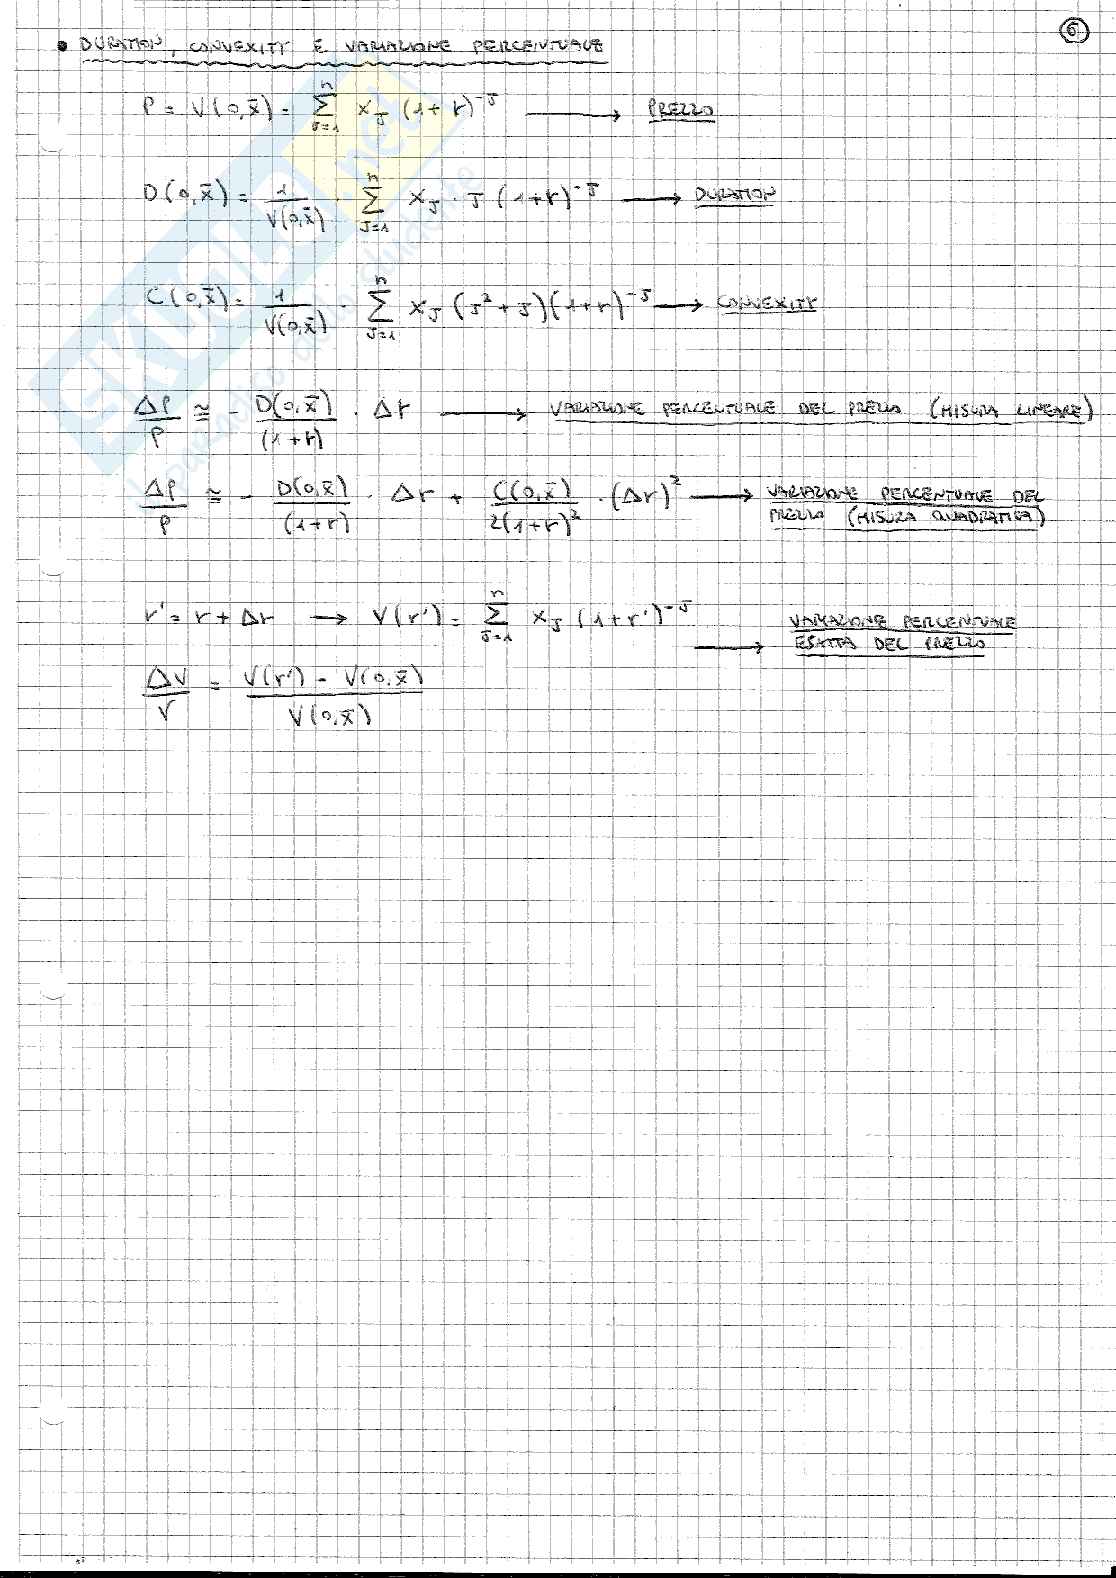 6
• DURATION, CONVEXITY E VARIAZIONE PERCENTUALE
P = V(0,x̄) = Σ_{J=1}^{n} x_J (1+r)^{-J} → PREZZO
D(0,x̄) = 1/V(0,x̄) · Σ_{J=1}^{n} x_J · J (1+r)^{-J} → DURATION
C(0,x̄) = 1/V(0,x̄) · Σ_{J=1}^{n} x_J (J²+J)(1+r)^{-J} → CONVEXITY
ΔP/P ≅ - D(0,x̄)/(1+r) · Δr → VARIAZIONE PERCENTUALE DEL PREZZO (MISURA LINEARE)
ΔP/P ≅ - D(0,x̄)/(1+r) · Δr + C(0,x̄)/2(1+r)² · (Δr)² → VARIAZIONE PERCENTUALE DEL
PREZZO (MISURA QUADRATICA)
r' = r + Δr → V(r') = Σ_{J=1}^{n} x_J (1+r')^{-J} → VARIAZIONE PERCENTUALE
ESATTA DEL PREZZO
ΔV/V = V(r') - V(0,x̄)/V(0,x̄)
SKUOLA.net